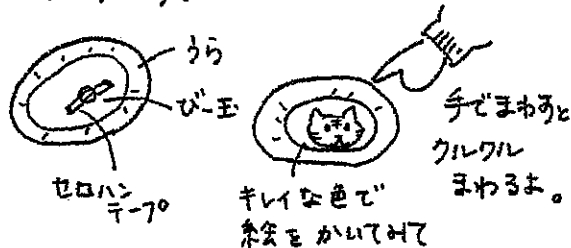 うら
びー玉
セロハン
テープ
キレイな色で
絵をかいてみて
手でまわすと
クルクル
まわるよ。